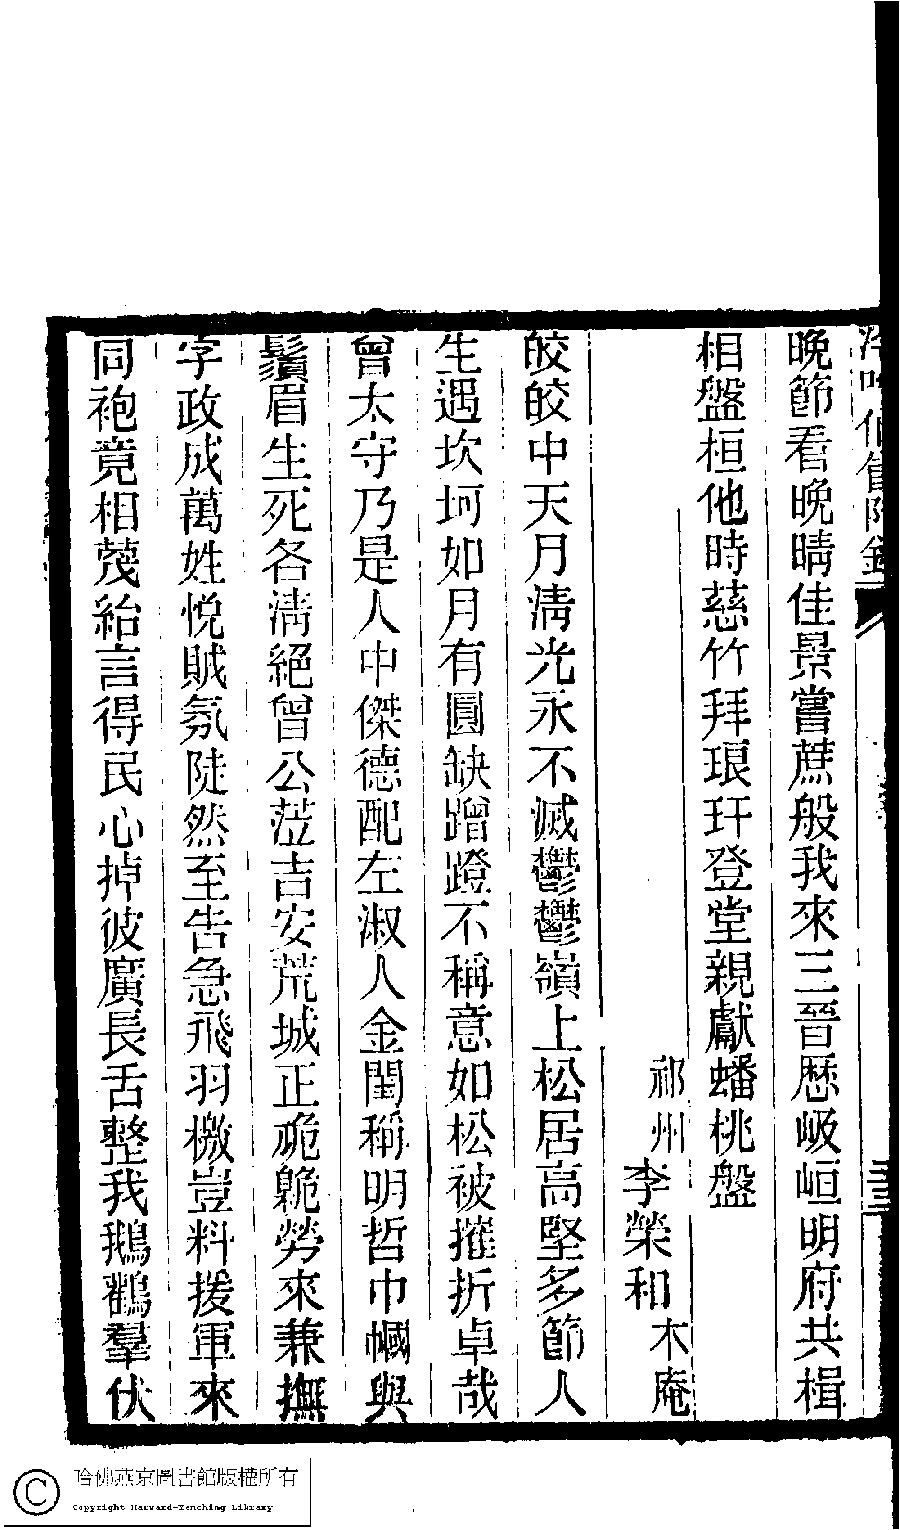 晚節看晚晴佳景嘗蔗般我來三晉歷岋峘明府共楫
相盤桓他時慈竹拜琅玕登堂親獻蟠桃盤
祁州李榮和木庵
皎皎中天月淸光永不滅鬱鬱嶺上松居高堅多節人
生遇坎坷如月有圓缺蹭蹬不稱意如松被摧折卓哉
曾太守乃是人中傑德配左淑人金閨稱明哲巾幗與
鬚眉生死各淸絕曾公蒞吉安荒城正硊𠨜勞來兼撫
字政成萬姓悅賊氛陡然至告急飛羽檄豈料援軍來
同袍竟相蔑紿言得民心掉彼廣長舌整我鵝鸛羣伏
哈佛燕京圖書館版權所有
Copyright Harvard-Yenching Library